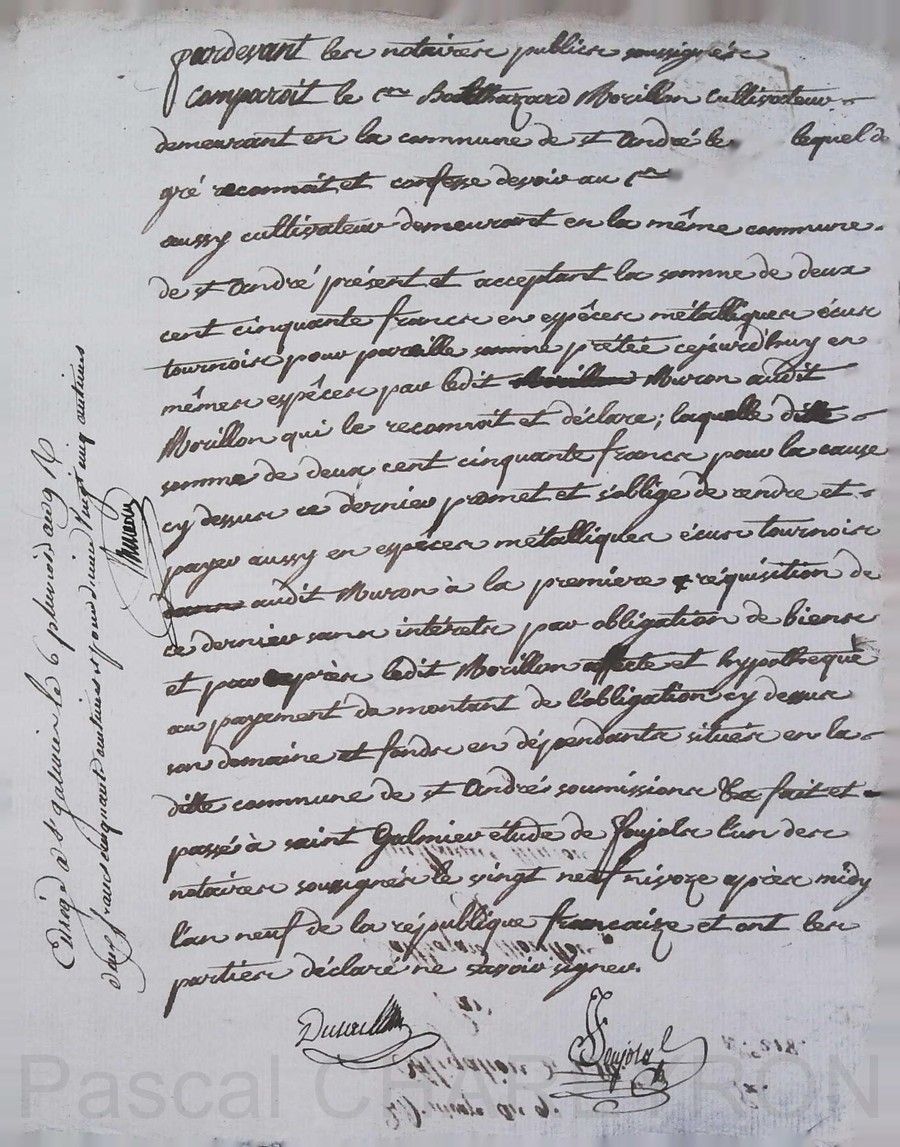 pardevant les notaires publics soussignés
comparoit le cen Balthazard Morillon cultivateur
demeurant en la commune de st André le lequel de
gré reconnoit et confesse devoir au cen
aussy cultivateur demeurant en la même commune
de st André présent et acceptant la somme de deux
cent cinquante francs en espèces métalliques écus
tournois pour pareille somme prêtée cejourd'huy en
mêmes espèces par ledit Morillon Muron audit
Morillon qui le reconnoit et déclare; laquelle ditte
somme de deux cent cinquante francs pour la cause
cy dessus ce dernier promet et s'oblige de rendre et
payer aussy en espèces métalliques écus tournois
audit Muron à la premiere réquisition de
ce dernier sans intérets par obligation de biens
et par exprès ledit Morillon affecte et hypothequé
au payement du montant de l'obligation cy dessus
son domaine et fonds en dépendants situés en la
ditte commune de st André soumissions &a fait et
passé à saint Galmier etude de Foujols l'un des
notaires soussignés le vingt neuf nivoze après midy
l'an neuf de la république française et ont les
parties déclaré ne savoir signer.
Foujols
Enrégé a St galmier le 6 pluviose an 9 R
deux francs cinquante centimes et pour dixième vingt cinq centimes
Pascal CHAREYRON